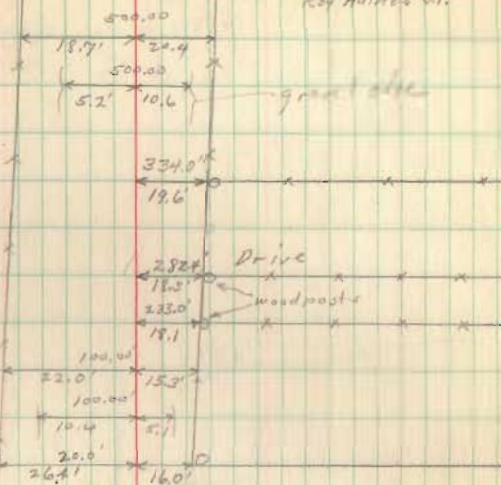 500.00
18.7' 20.4
500.00
5.2' 10.6
334.0'
19.6'
282.4' Drive
18.3' woodposts
233.0'
18.1
100.00'
22.0' 15.3'
100.00'
10.4 5.1
20.0'
26.4' 16.0'